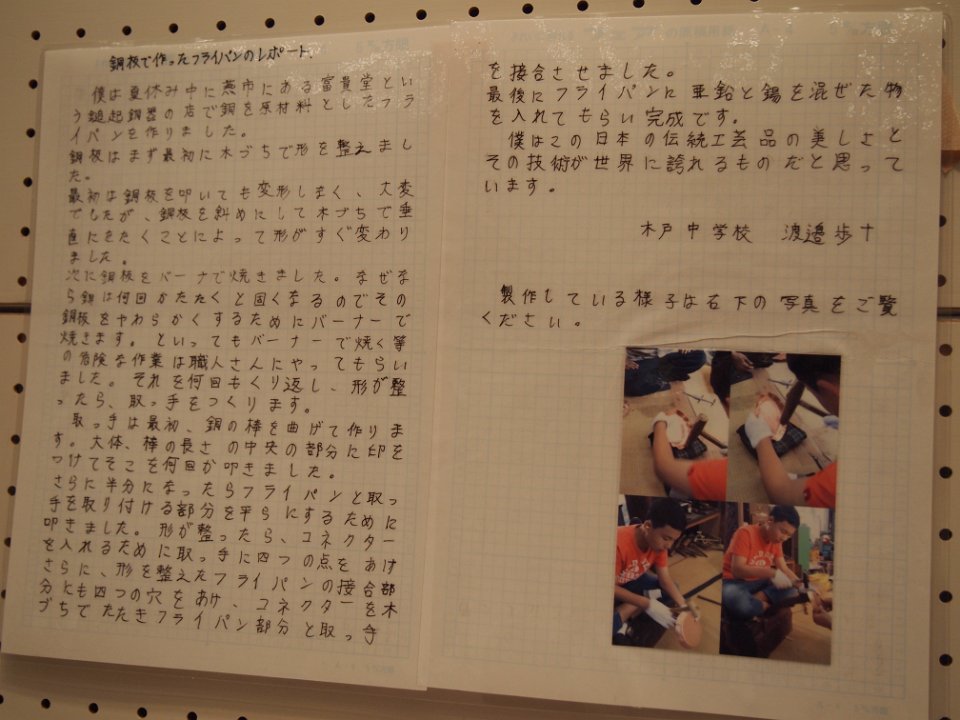 銅板で作ったフライパンのレポート、
僕は夏休み中に燕市にある富貴堂とい
う鎚起銅器の店で銅を原材料としたフラ
イパンを作りました。
銅板はまず最初に木づちで形を整えまし
た。
最初は銅板を叩いても変形しまく、大変
でしたが、銅板を斜めにして木づちで垂
直にたたくことによって形がすぐ変わり
ました。
次に銅板をバーナで焼きました。なぜな
ら銅は何回かたたくと固くなるのでその
銅板をやわらかくするためにバーナーで
焼きます。といってもバーナーで焼く等
の危険な作業は職人さんにやってもらい
ました。それを何回もくり返し、形が整
ったら、取っ手をつくります。
取っ手は最初、銅の棒を曲げて作りま
す。大体、棒の長さの中央の部分に印を
つけてそこを何回か叩きました。
さらに半分になったらフライパンと取っ
手を取り付ける部分を平らにするために
叩きました。形が整ったら、コネクター
を入れるために取っ手に四つの点をあけ
さらに、形を整えたフライパンの接合部
分にも四つの穴をあけ、コネクターを木
づちでたたきフライパン部分と取っ手
を接合させました。
最後にフライパンに亜鉛と錫を混ぜた物
を入れてもらい完成です。
僕はこの日本の伝統工芸品の美しさと
その技術が世界に誇れるものだと思って
います。
木戸中学校 渡邉歩十
製作している様子は右下の写真をご覧
ください。